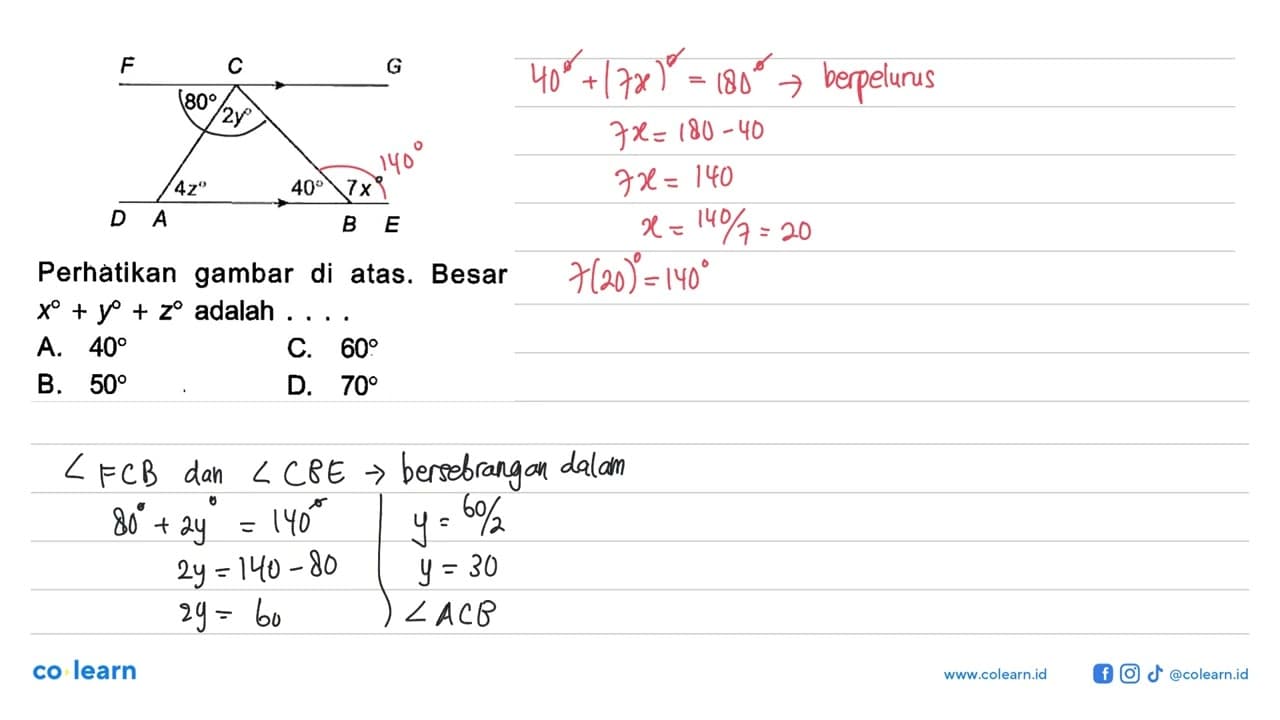 F C G
80°
2y°
140°
4z° 40° 7x°
D A B E
Perhatikan gambar di atas. Besar
x° + y° + z° adalah . . . .
A. 40° C. 60°
B. 50° D. 70°
40° + (7x)° = 180° → berpelurus
7x = 180 - 40
7x = 140
x = 140/7 = 20
7(20)° = 140°
∠ FCB dan ∠ CBE → bersebrangan dalam
80° + 2y° = 140°
2y = 140 - 80
2y = 60
y = 60/2
y = 30
∠ ACB
co learn
www.colearn.id @colearn.id